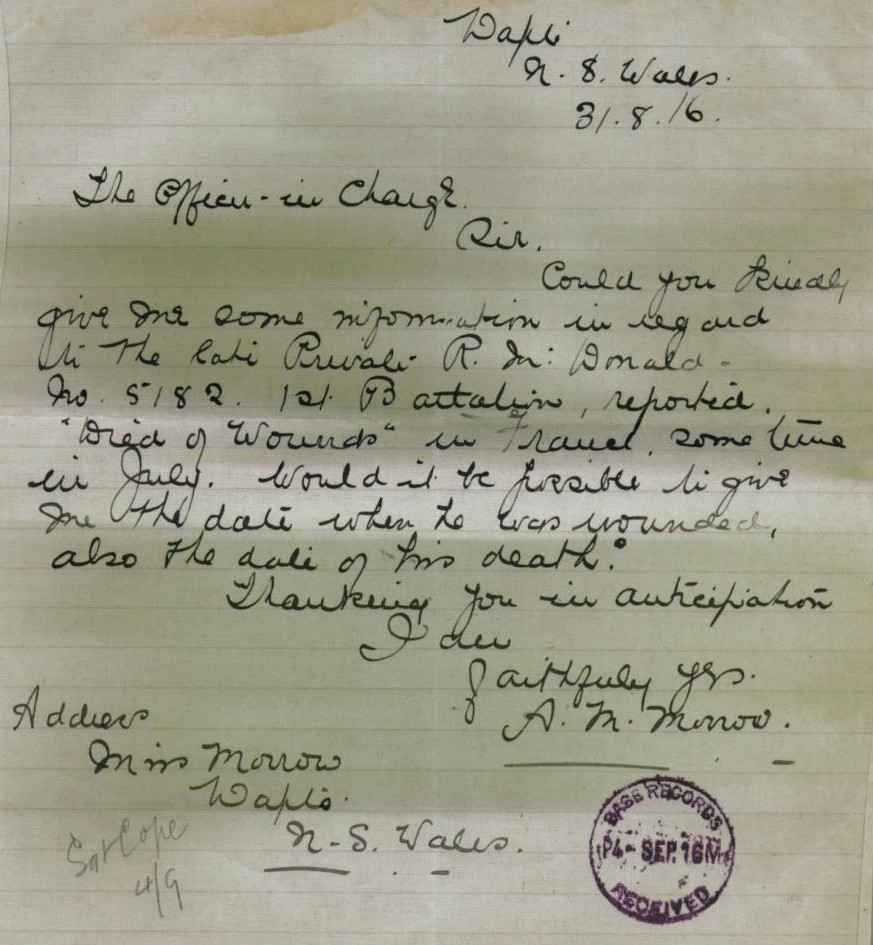 Wapli
N. S. Wales.
31.8.16.
The Officer-in Charge.
Sir.
Could you kindly
give me some information in regard
to the late Private R. Mc: Donald -
No. 5182. 1st Battalion, reported.
"Died of Wounds" in France. some time
in July. Would it be possible to give
me the date when he was wounded,
also the date of his death?
Thanking you in anticipation
I am
faithfuly yrs.
A. M. Morrow.
Address
Miss Morrow
N-S. Wales.
Sgt Cope
4/9
BASE RECORDS
P4 - SEP. 16 M
RECEIVED